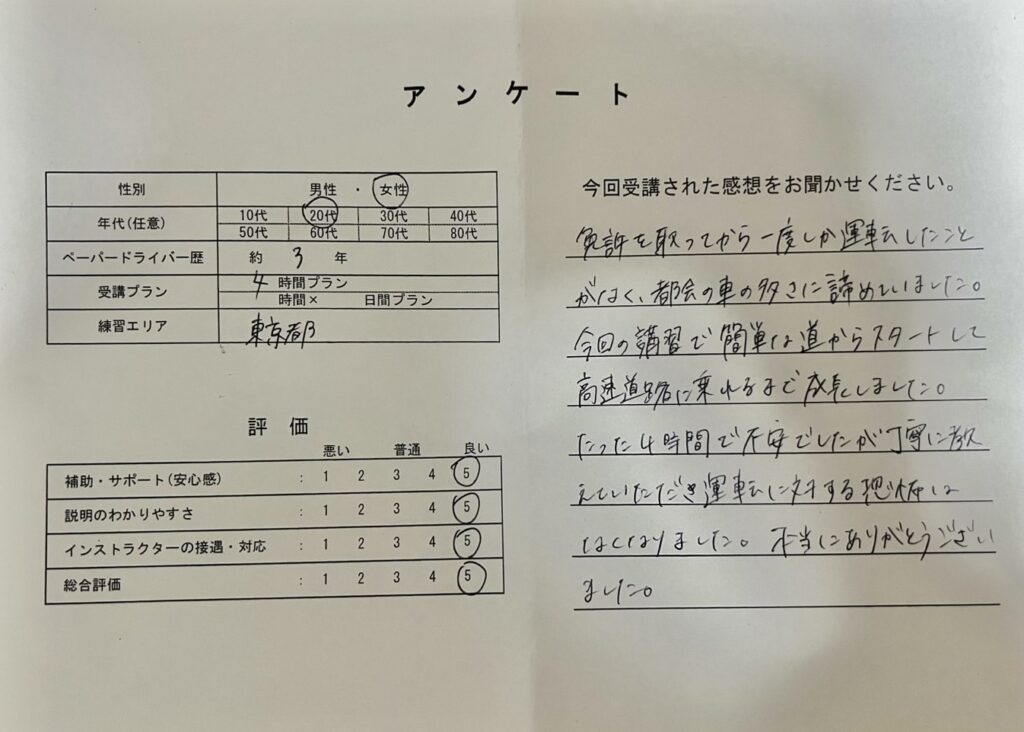 アンケート
性別 男性 ・ 女性
年代(任意) 10代 20代 30代 40代
50代 60代 70代 80代
ペーパードライバー歴 約 3 年
受講プラン 4 時間プラン
時間× 日間プラン
練習エリア 東京都
評価
悪い 普通 良い
補助・サポート(安心感) : 1 2 3 4 5
説明のわかりやすさ : 1 2 3 4 5
インストラクターの接遇・対応 : 1 2 3 4 5
総合評価 : 1 2 3 4 5
今回受講された感想をお聞かせください。
免許を取ってから一度しか運転したこと
がなく、都会の車の多さに諦めていました。
今回の講習で簡単な道からスタートして
高速道路に乗れるまで成長しました。
たった4時間で不安でしたが丁寧に教
えていただき運転に対する恐怖は
なくなりました。本当にありがとうござい
ました。